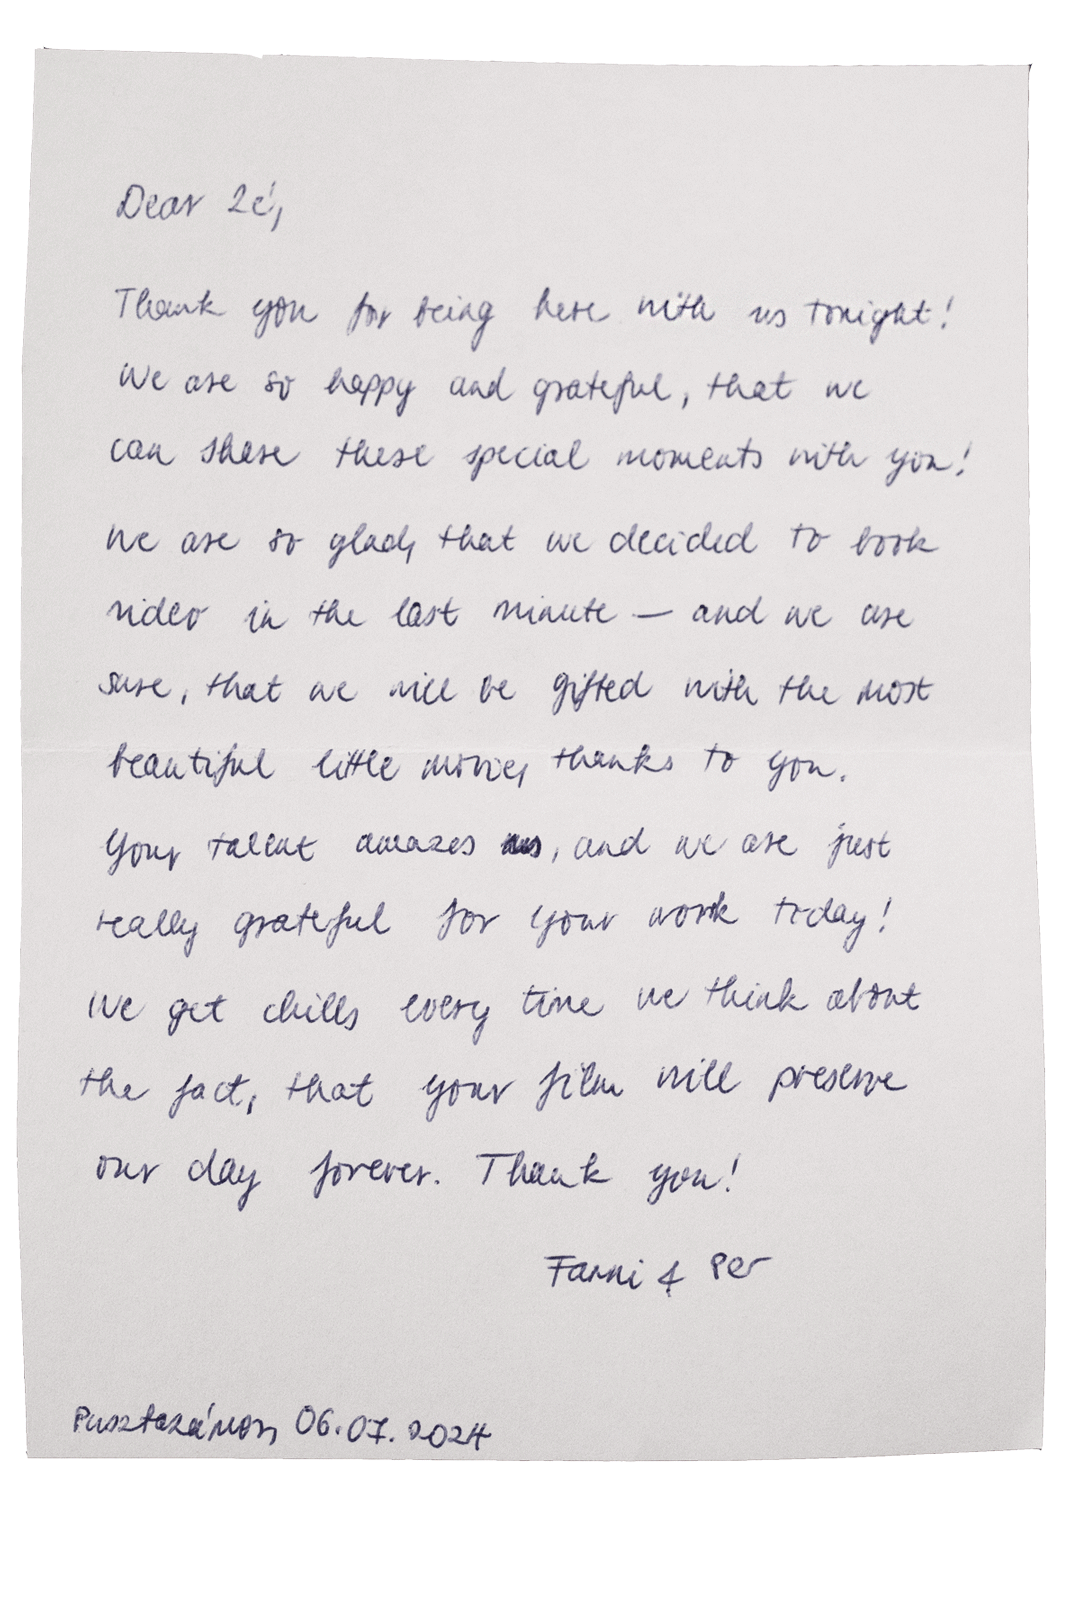 Dear Zé,
Thank you for being here with us tonight!
We are so happy and grateful, that we
can share these special moments with you!
We are so glad, that we decided to book
video in the last minute — and we are
sure, that we will be gifted with the most
beautiful little movie, thanks to you.
Your talent amazes us, and we are just
really grateful for your work today!
We get chills every time we think about
the fact, that your film will preserve
our day forever. Thank you!
Fanni & Per
Pusztazámor, 06.07.2024